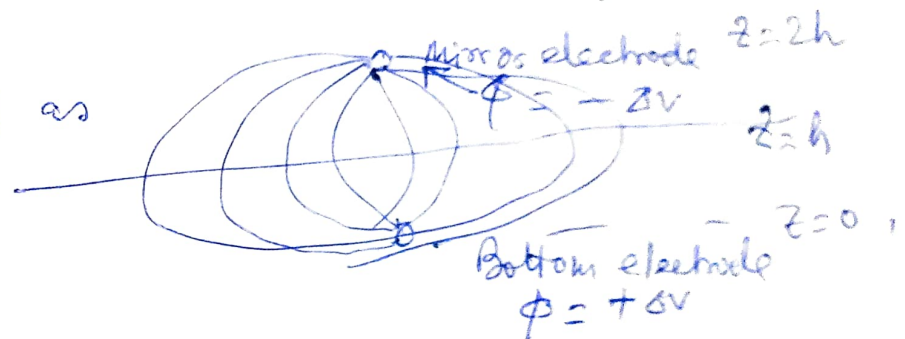 Mirror electrode z=2h
as
ϕ = - ΔV
z=h
z=0,
Bottom electrode
ϕ = + ΔV